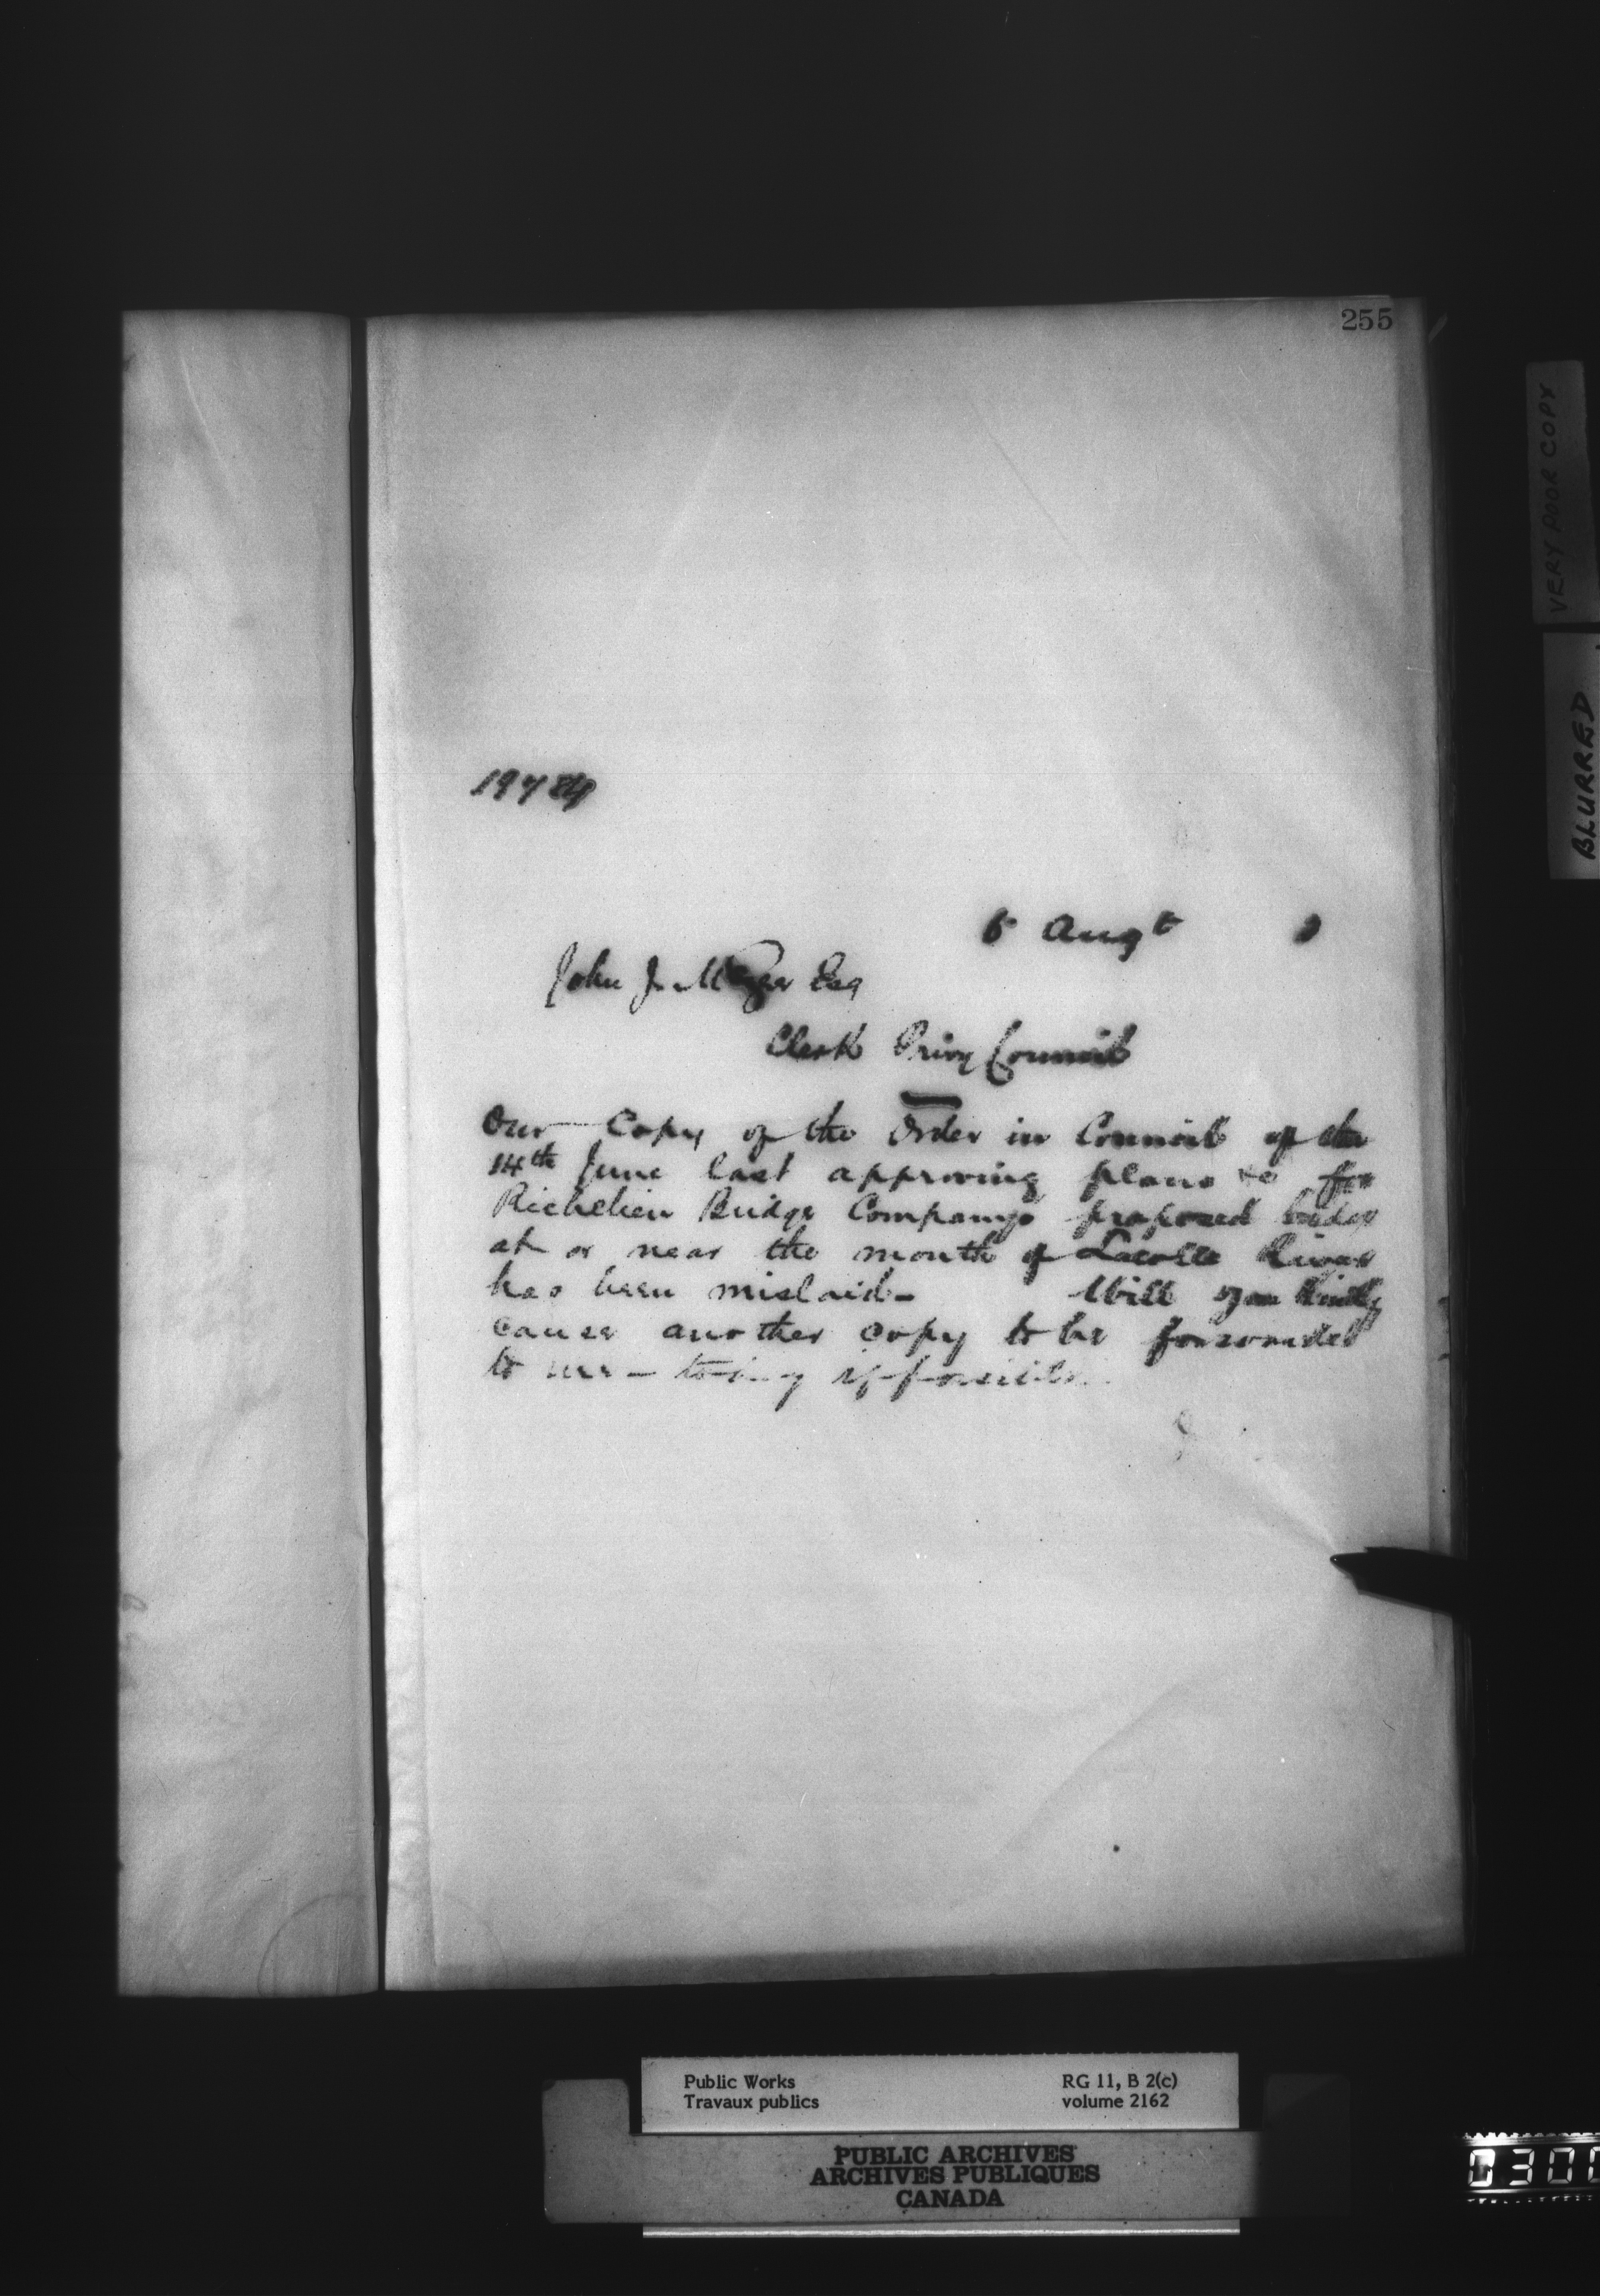 255
VERY POOR COPY
BLURRED
6 Augt
John J. McGee Esq
Clerk Privy Council
Our Copy of the Order in Council of the
14th June last approving plans &c for
Richelieu Bridge Companys proposed bridge
at or near the mouth of Lacolle River
has been mislaid - Will you kindly
cause another copy to be forwarded
to me - to-day if possible.
Public Works
Travaux publics
RG 11, B 2(c)
volume 2162
PUBLIC ARCHIVES
ARCHIVES PUBLIQUES
CANADA